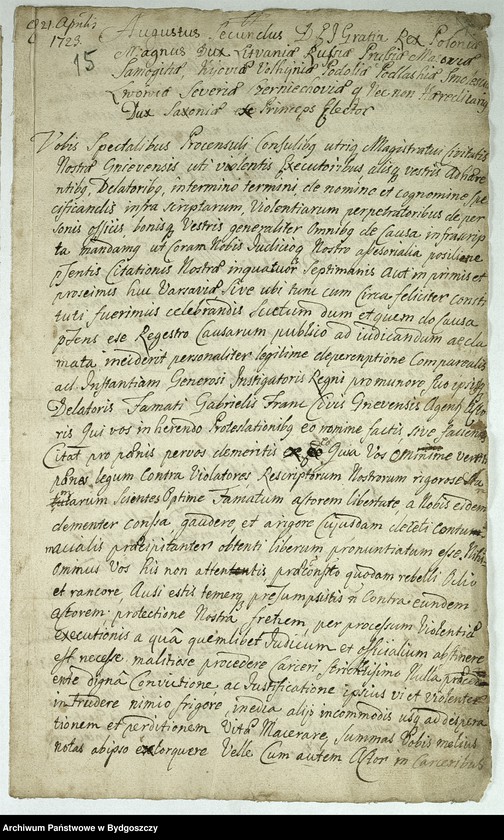 d 21. Aprilis
1723.
15
Augustus Secundus D E I Gratia Rex Poloniæ
Magnus Dux Litvaniæ Russiæ Prussiæ Masoviæ
Samogitiæ, Kijoviæ Volhyniæ Podoliæ Podlachiæ Smolensciæ
Livoniæ Severiæ Czerniechoviæq Nec non Hæreditarius
Dux Saxoniæ et Princeps Elector
Vobis Spectabilibus Proconsuli Consulibq utriq Magistratui Civitatis
Nostræ Gnievensis uti violentis Executoribus alijsq vestris Adhære
ntibq Delatoribq, intermino termini de nomine et cognomine spe
cificandis infra Scriptarum, Violentiarum perpetratoribus de per
sonis officijs, bonisq Vestris generaliter Omnibq de Causa infrascrip
ta mandamq ut Coram Nobis Iudicijsq Nostris
pſentis Citationis Nostræ Septimanis Aut in primis et
proximis huc Varsaviæ Sive ubi tunc cum Curia feliciter consti
tuti fuerimus celebrandis dum et quem do causa
pſens ese Regestro Causarum publico ad iudicandum accla
mata inciderit personaliter legitime deperenptione Compareatis
ad Instantiam Generosi Instigatoris Regni
Delatoris Famati Gabrielis Franc Civis Gnevensis
ris Qui vos inhærendo Protestationibq eo nomine factis, sive
Citat pro pœnis pervos demeritis Qua Vos
pœnes legum Contra Violatores Rescriptorum Nostrorum rigorose
Scientes Optime Famatum actorem libertate, a Nobis eidem
clementer consſa gaudere, et a rigore Cujusdam decreti Contum
macialis præcipitanter obtenti liberum pronuntiatum esse,
Ommus Vos his non attentis quodam rebelli Odio
et rancore, Ausi estis temereq præsumpsistis Contra eundem
actorem protectione Nostra fretum per processum Violentiæ
Executionis a qua quemlibet Iudicium et officialium abstinere
est necesse, malitiose procedere Carceri Strictissimo Nulla
ente digna Convictione, ac Iustificatione ipsius vi et violenter
intrudere nimio frigore, inedia alijs incommodis usq ad despera
tionem et perditionem Vitæ Macerare, Summas Vobis melius
notas abipso extorquere Velle Cum autem Actor in Carceribus
Archiwum Państwowe w Bydgoszczy